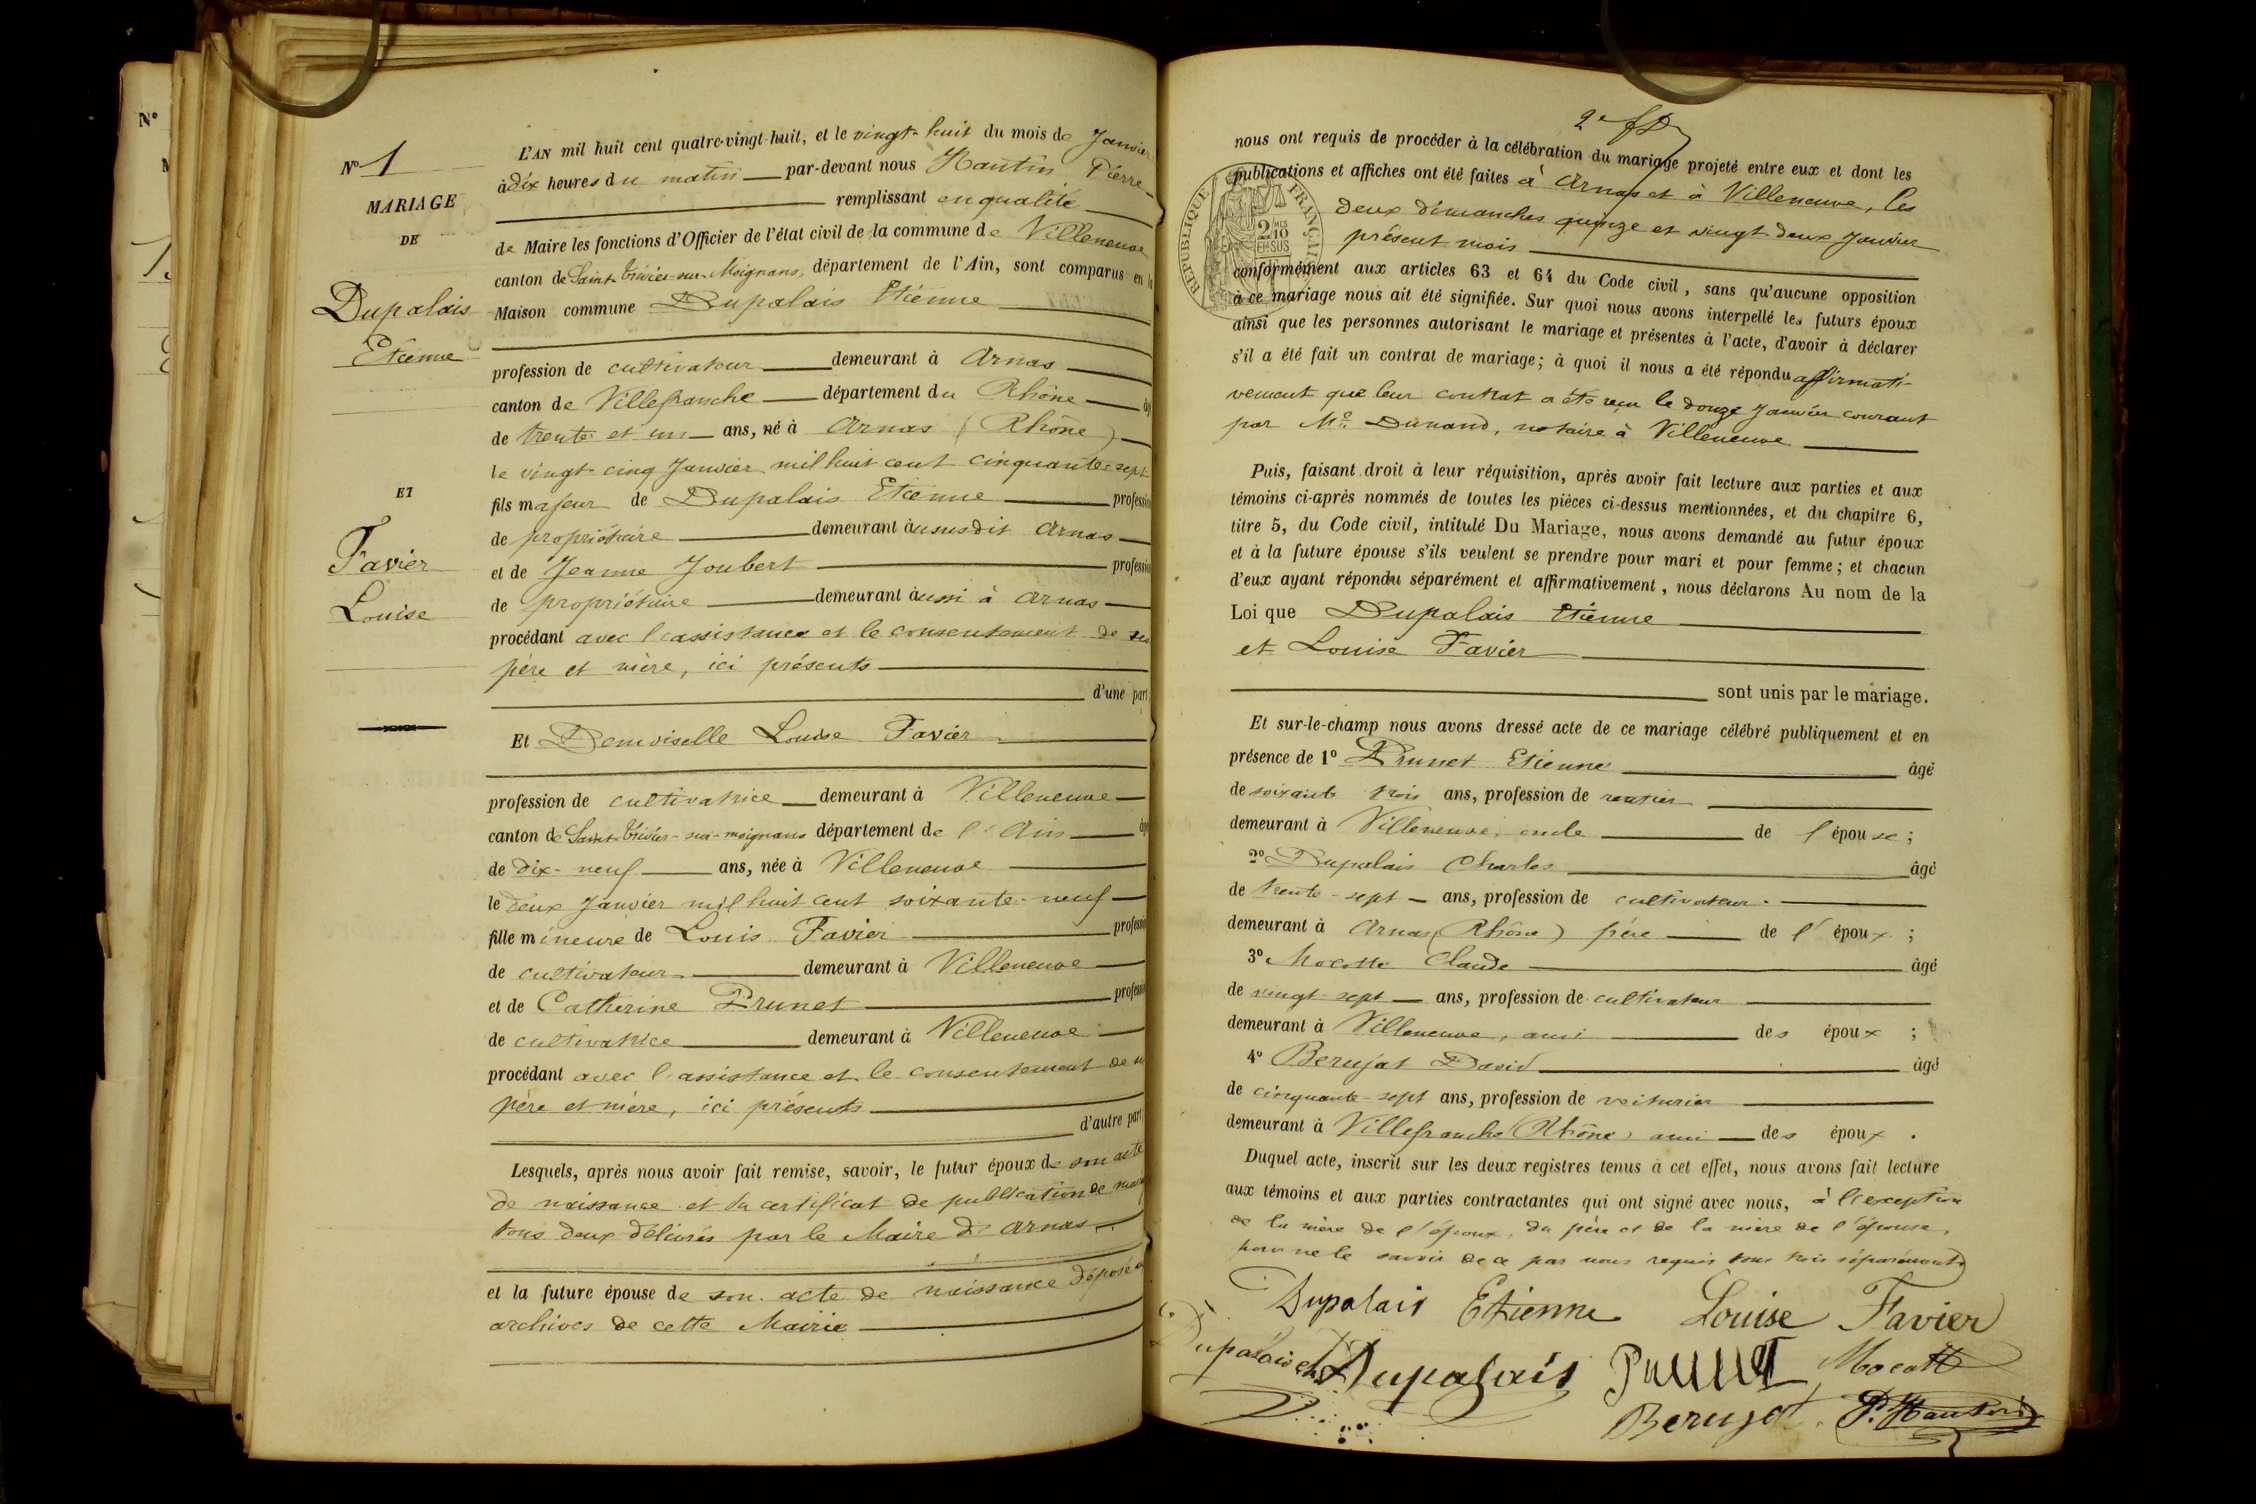 N°
N° 1
MARIAGE
DE
Dupalais
Etienne
ET
Favier
Louise
L'AN mil huit cent quatre-vingt-huit, et le vingt-huit du mois de Janvier
à dix heures du matin par-devant nous Hautin Pierre
remplissant en qualité
de Maire les fonctions d'Officier de l'état civil de la commune de Villeneuve
canton de Saint-Trivier-sur-Moignans, département de l'Ain, sont comparus en la
Maison commune Dupalais Etienne
profession de cultivateur demeurant à Arnas
canton de Villefranche département du Rhône âgé
de trente et un ans, né à Arnas (Rhône)
le vingt-cinq Janvier mil huit cent cinquante-sept
fils majeur de Dupalais Etienne profession
de propriétaire demeurant à susdit Arnas
et de Jeanne Joubert profession
de propriétaire demeurant aussi à Arnas
procédant avec l'assistance et le consentement de ses
père et mère, ici présents
d'une part
Et Demoiselle Louise Favier
profession de cultivatrice demeurant à Villeneuve
canton de Saint-Trivier-sur-moignans département de l'Ain âgé
de dix-neuf ans, née à Villeneuve
le deux Janvier mil huit cent soixante-neuf
fille mineure de Louis Favier profession
de cultivateur demeurant à Villeneuve
et de Catherine Prunet profession
de cultivatrice demeurant à Villeneuve
procédant avec l'assistance et le consentement de
père et mère, ici présents
d'autre part
Lesquels, après nous avoir fait remise, savoir, le futur époux de son acte
de naissance et du certificat de publication de
tous deux délivrés par le Maire d'Arnas
et la future épouse de son acte de naissance déposé
archives de cette Mairie
2e
nous ont requis de procéder à la célébration du mariage projeté entre eux et dont les
publications et affiches ont été faites à Arnas et à Villeneuve, les
deux dimanches quinze et vingt-deux Janvier
présent mois
RÉPUBLIQUE FRANÇAISE
2/10
EN SUS
conformément aux articles 63 et 64 du Code civil, sans qu'aucune opposition
à ce mariage nous ait été signifiée. Sur quoi nous avons interpellé les futurs époux
ainsi que les personnes autorisant le mariage et présentes à l'acte, d'avoir à déclarer
s'il a été fait un contrat de mariage; à quoi il nous a été répondu affirmati-
vement que leur contrat a été reçu le douze Janvier courant
par Me Dunand, notaire à Villeneuve
Puis, faisant droit à leur réquisition, après avoir fait lecture aux parties et aux
témoins ci-après nommés de toutes les pièces ci-dessus mentionnées, et du chapitre 6,
titre 5, du Code civil, intitulé Du Mariage, nous avons demandé au futur époux
et à la future épouse s'ils veulent se prendre pour mari et pour femme; et chacun
d'eux ayant répondu séparément et affirmativement, nous déclarons Au nom de la
Loi que Dupalais Etienne
et Louise Favier
sont unis par le mariage.
Et sur-le-champ nous avons dressé acte de ce mariage célébré publiquement et en
présence de 1° Prunet Etienne âgé
de soixante trois ans, profession de rentier
demeurant à Villeneuve, oncle de l'épouse;
2° Dupalais Charles âgé
de trente-sept ans, profession de cultivateur
demeurant à Arnas (Rhône) frère de l'époux;
3° Mocotte Claude âgé
de vingt-sept ans, profession de cultivateur
demeurant à Villeneuve, ami des époux;
4° Berujat David âgé
de cinquante-sept ans, profession de voiturier
demeurant à Villefranche (Rhône) ami des époux.
Duquel acte, inscrit sur les deux registres tenus à cet effet, nous avons fait lecture
aux témoins et aux parties contractantes qui ont signé avec nous, à l'exception
de la mère de l'époux, du père et de la mère de l'épouse,
pour ne le savoir de ce par nous requis tous trois séparément
Dupalais Etienne Louise Favier
Dupalais Ch. Dupalais Prunet Mocott
Berujat P. Hautin